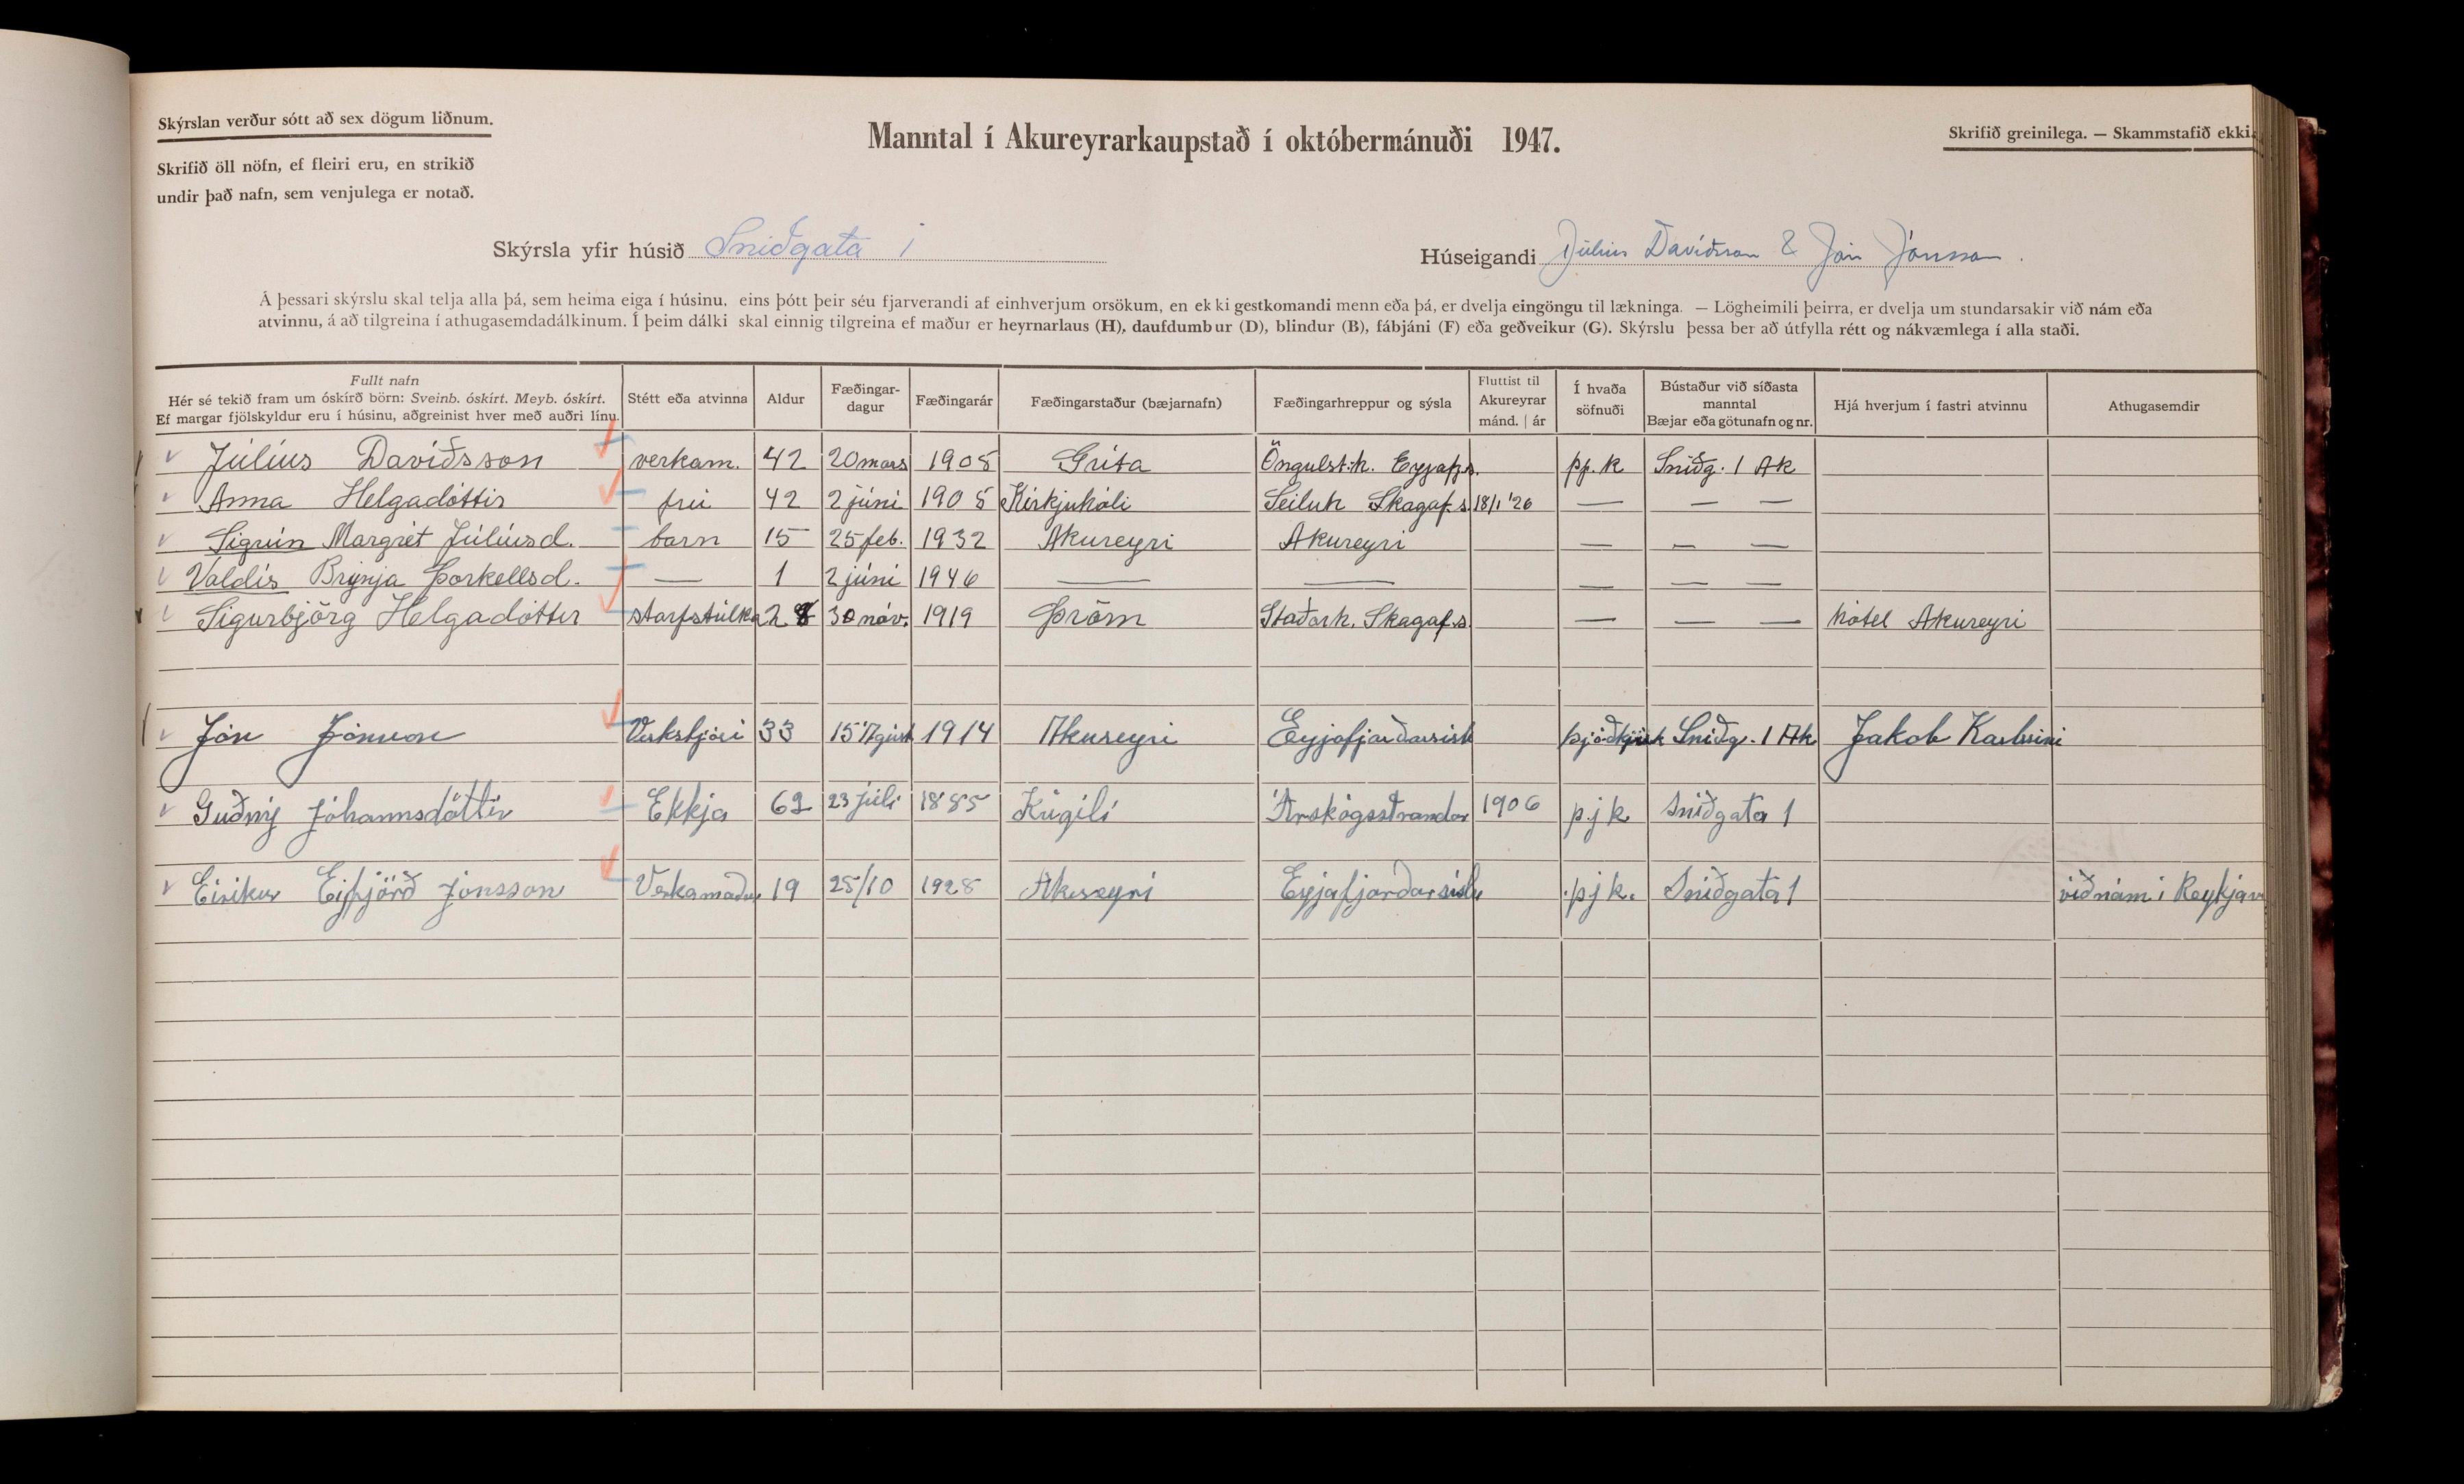 Skýrslan verður sótt að sex dögum liðnum.
Skrifið öll nöfn, ef fleiri eru, en strikið
undir það nafn, sem venjulega er notað.
Manntal í Akureyrarkaupstað í októbermánuði 1947.
Skrifið greinilega. — Skammstafið ekki.
Skýrsla yfir húsið Sniðgata 1
Húseigandi Júlíus Davíðsson & Jón Jónsson.
Á þessari skýrslu skal telja alla þá, sem heima eiga í húsinu, eins þótt þeir séu fjarverandi af einhverjum orsökum, en ekki gestkomandi menn eða þá, er dvelja eingöngu til lækninga. — Lögheimili þeirra, er dvelja um stundarsakir við nám eða
atvinnu, á að tilgreina í athugasemdadálkinum. Í þeim dálki skal einnig tilgreina ef maður er heyrnarlaus (H), daufdumbur (D), blindur (B), fábjáni (F) eða geðveikur (G). Skýrslu þessa ber að útfylla rétt og nákvæmlega í alla staði.
Fullt nafn
Hér sé tekið fram um óskírð börn: Sveinb. óskírt. Meyb. óskírt.
Ef margar fjölskyldur eru í húsinu, aðgreinist hver með auðri línu.
Stétt eða atvinna
Aldur
Fæðingar-
dagur
Fæðingarár
Fæðingarstaður (bæjarnafn)
Fæðingarhreppur og sýsla
Fluttist til
Akureyrar
mánd. | ár
Í hvaða
söfnuði
Bústaður við síðasta
manntal
Bæjar eða götunafn og nr.
Hjá hverjum í fastri atvinnu
Athugasemdir
Júlíus Davíðsson verkam. 42 20 mars 1905 Gríta Öngulst.h. Eyjafj.s. þj. k Sniðg. 1 Ak
Anna Helgadóttir frú 42 2 júní 1905 Kirkjuhóli Seiluh Skagaf.s. 18/1 '26 — — —
Sigrún Margrét Júlíusd. barn 15 25 feb. 1932 Akureyri Akureyri — — —
Valdís Brynja Þorkellsd. — 1 2 júní 1946 — — — — —
Sigurbjörg Helgadóttir starfstúlka 28 30 nóv. 1919 Þröm Staðarh. Skagaf.s. — — — hótel Akureyri
Jón Jónsson Verkstjóri 33 15 Ágúst 1914 Akureyri Eyjafjarðarsísl þjóðkirk Sniðg. 1 Ak Jakob Karlssini
Guðný Jóhannsdóttir Ekkja 62 23 júlí 1885 Krúgili Árskógsstrandar 1906 þjk Sniðgata 1
Eiríkur Eyfjörð Jónsson Verkamaður 19 25/10 1928 Akureyri Eyjafjarðarsíslu þjk. Sniðgata 1 við nám í Reykjav